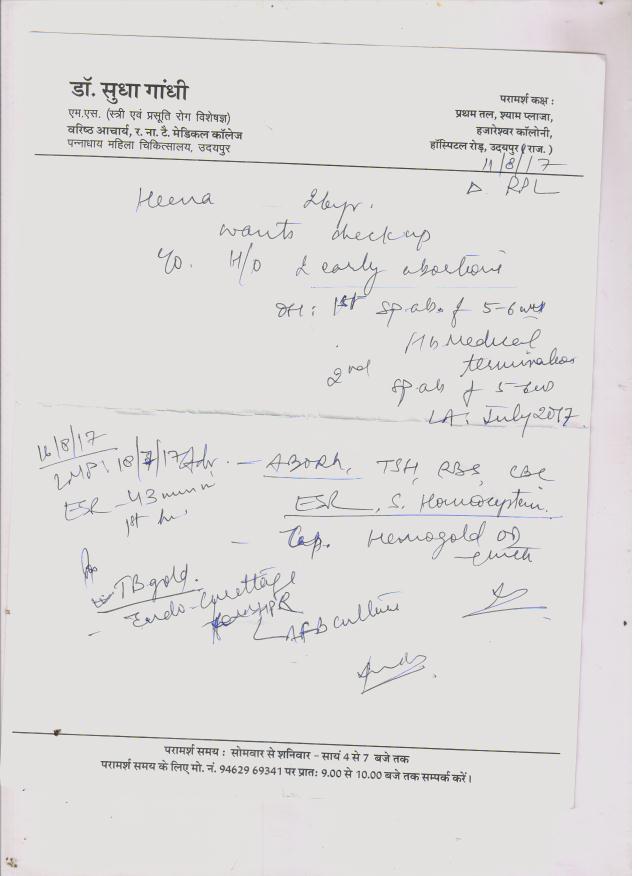 डॉ. सुधा गांधी
एम.एस. (स्त्री एवं प्रसूति रोग विशेषज्ञ)
वरिष्ठ आचार्य, र. ना. टै. मेडिकल कॉलेज
पन्नाधाय महिला चिकित्सालय, उदयपुर
परामर्श कक्ष :
प्रथम तल, श्याम प्लाजा,
हजारेश्वर कॉलोनी,
हॉस्पिटल रोड़, उदयपुर (राज.)
11/8/17
Δ RPL
Heena 26yr.
wants checkup
H/O 2 early abortions
OH: 1st sp. ab. of 5-6 wks
Medical
termination
2nd sp ab of 5-6
LA: July 2017
16/8/17
LMP: 18/7/17 Adv. - ABORh, TSH, RBS, CBC
ESR - 43 mm in ESR, S. Homocystein.
1st hr.
- Cap. Hemogold OD
TB gold.
- Endo-Curettage
for HPR
AFB culture
परामर्श समय : सोमवार से शनिवार - सायं 4 से 7 बजे तक
परामर्श समय के लिए मो. नं. 94629 69341 पर प्रातः 9.00 से 10.00 बजे तक सम्पर्क करें।